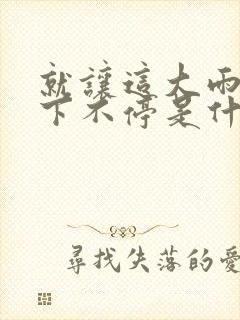 就讓這大雨
下不停是什
尋找失落的愛